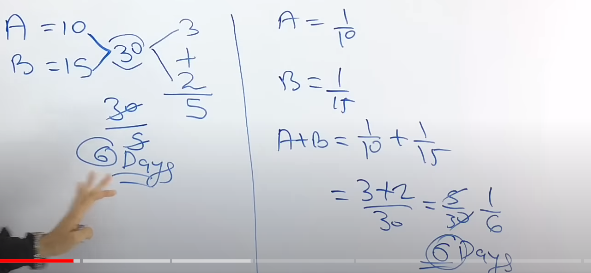 A = 10
B = 15
30
3
+
2
5
30/5
6 Days
A = 1/10
B = 1/15
A+B = 1/10 + 1/15
= 3+2/30 = 5/30 1/6
6 Days